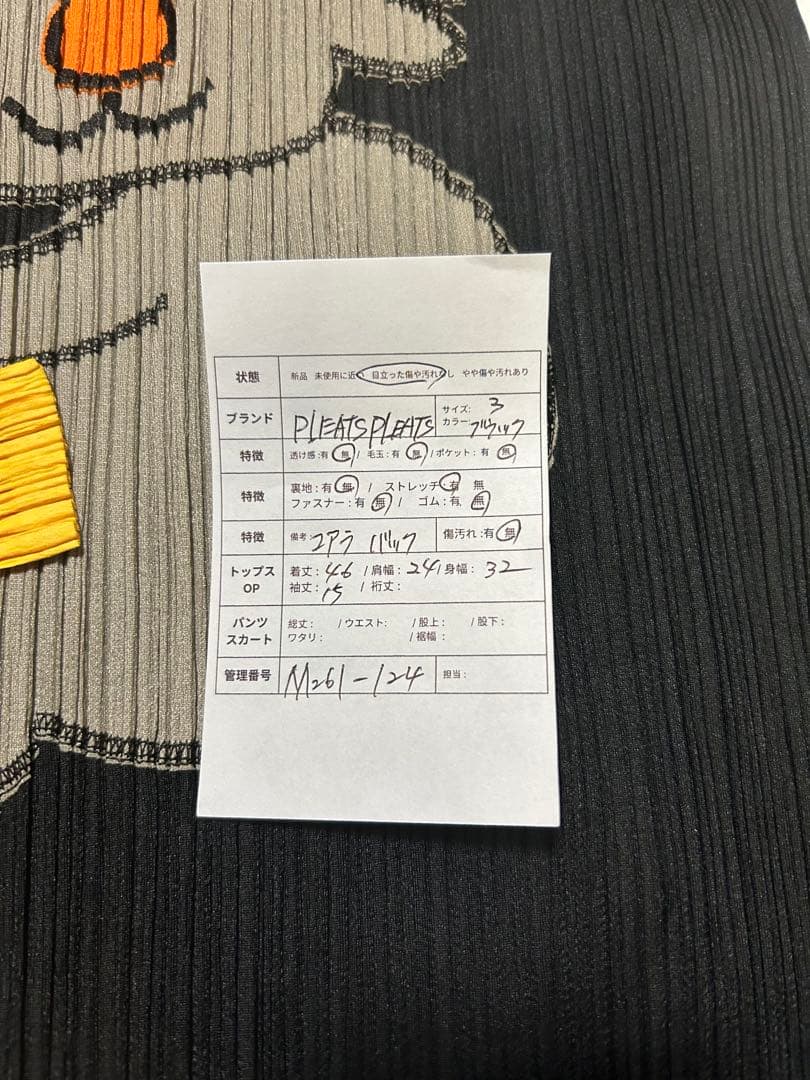 状態 新品 未使用に近い 目立った傷や汚れなし やや傷や汚れあり
ブランド PLEATS PLEATS サイズ: 3
カラー: ブラック
特徴 透け感:有 無 / 毛玉:有 無 /ポケット: 有 無
特徴 裏地:有 無 / ストレッチ:有 無
ファスナー:有 無 / ゴム:有 無
特徴 備考: コアラ バック 傷汚れ:有 無
トップス OP 着丈: 46 /肩幅: 24 /身幅: 32
袖丈: 15 / 裄丈:
パンツ スカート 総丈: /ウエスト: /股上: /股下:
ワタリ: /裾幅:
管理番号 M261-124 担当: